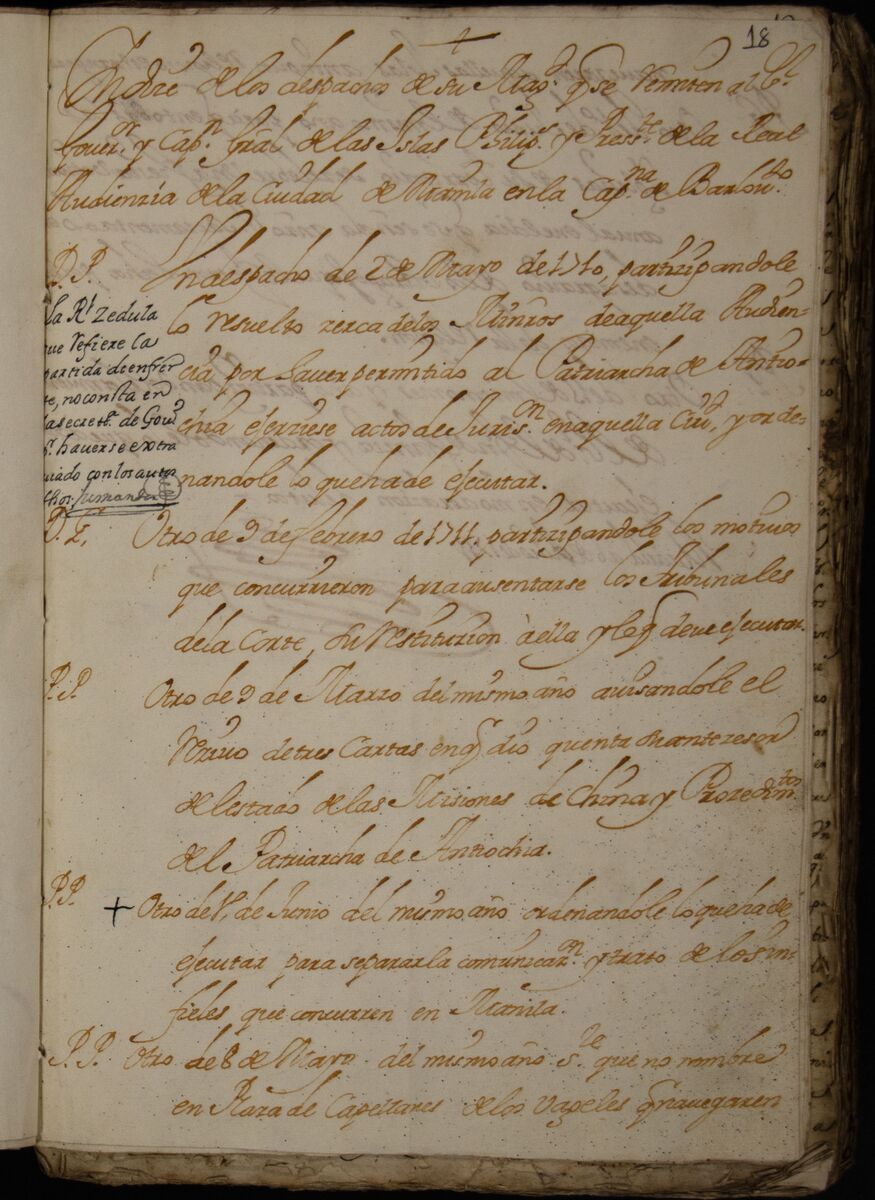 18
+
Yndize de los despachos de su Mag.d q̃ se remiten al S.r
Gover.or y Cap.n Gral de las Islas Philip.s y Press.te de la Real
Audienzia de la Ciudad de Manila en la Cap.na de Barlov.to
P.P. Un despacho de 2 de Mayo de 1710, partizipandole
lo resuelto zerca delos Minros de aquella Audien-
cia por haver permitido al Patriarcha de Antio-
chia ejerziese actos de Juris.on en aquella Ciu.d, y orde-
nandole lo que ha de ejecutar.
La R.l Zedula
que refiere la
partida de enfren
te, no consta en
la secret.a de Gov.no
p.r haverse extra
viado con los autos
P.P. Otro de 9 de febrero de 1711. partizipandole los motivos
que concurrieron para ausentarse los Tribunales
dela Corte, su restituzion à ella y lo q̃ deve ejecutar.
P.P. Otro de 9 de Marzo del mismo año avisandole el
rezivo de tres Cartas en q̃ dio quenta su antezesor
del estado de las Misiones de China y Prozedim.tos
del Patriarcha de Antiochia.
P.P. + Otro de 1.o de Junio del mismo año ordenandole lo que ha de
ejecutar para separar la comunicaz.on y trato de los in-
fieles que concurren en Manila.
P.P. Otro de 8 de Mayo del mismo año s.re que no nombre
en Plaza de Capellanes de los vageles q̃ navegaren